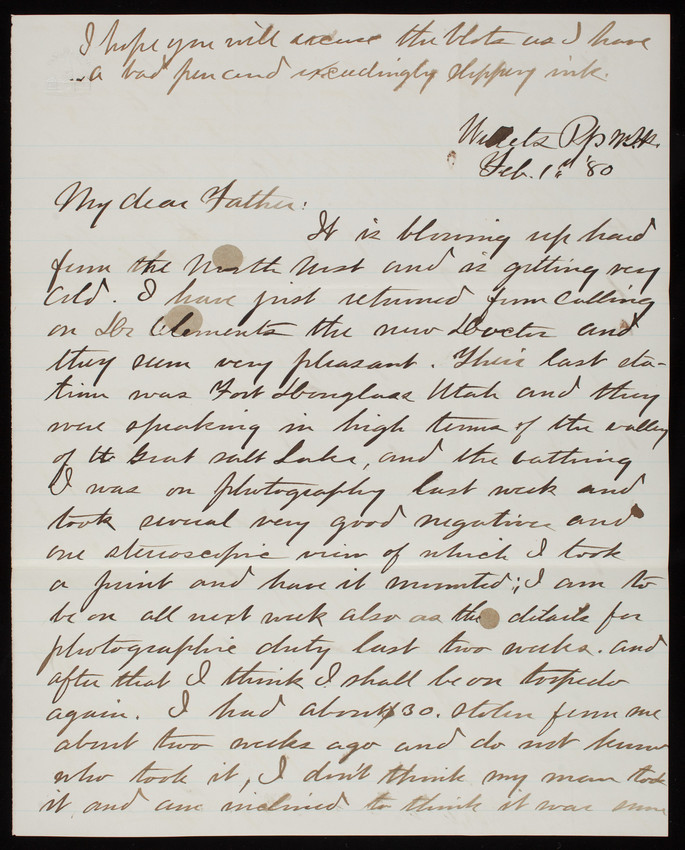 I hope you will excuse the blots as I have
a bad pen and exceedingly slippery ink.
Willets Pt N.Y.H.
Feb. 1st '80
My dear Father:
It is blowing up hard
from the North West and is getting very
Cold. I have just returned from calling
on Dr Clements the new Doctor and
they seem very pleasant. Their last sta-
tion was Fort Douglass Utah and they
were speaking in high terms of the valley
of tt Great Salt Lake, and the bathing
I was on photography last week and
took several very good negatives and
one stereoscopic view of which I took
a print and have it mounted; I am to
be on all next week also as the details for
photographic duty last two weeks. and
after that I think I shall be on torpedo
again. I had about $30. stolen from me
about two weeks ago and do not know
who took it, I don't think my man took
it and am inclined to think it was some